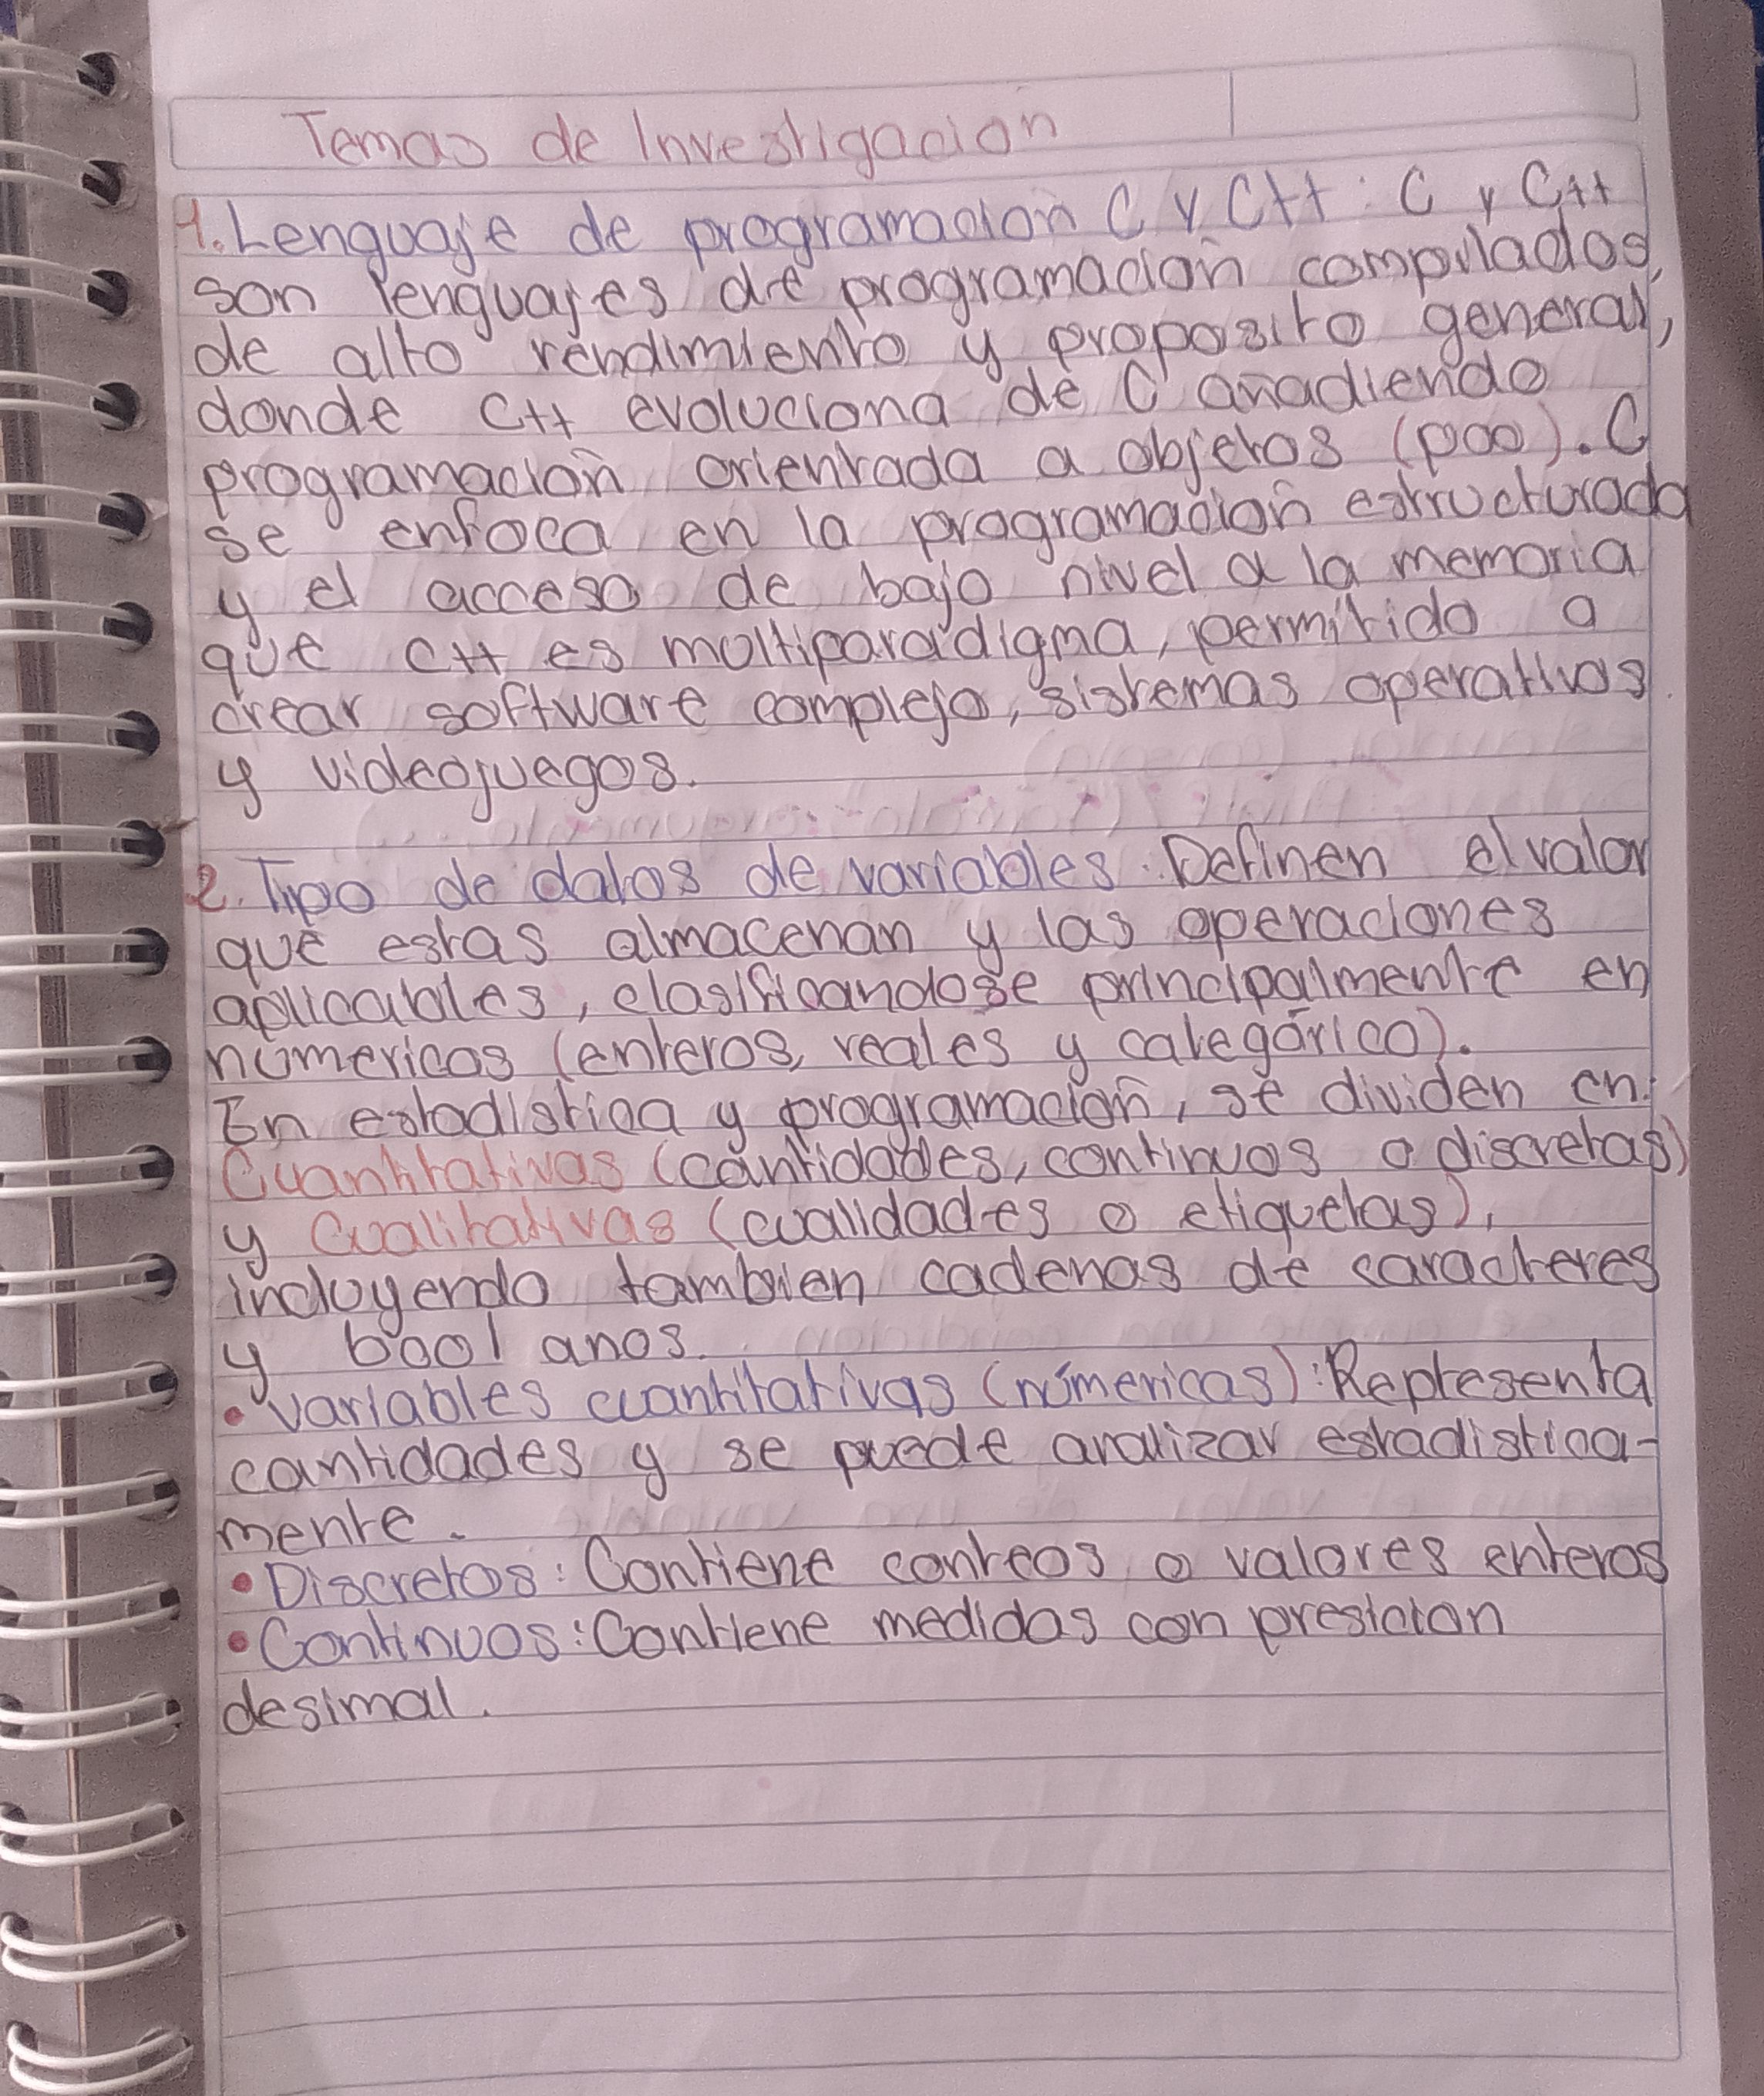 Temas de Investigacion
1. Lenguaje de programacion C y C++: C y C++
son lenguajes de programacion compilados,
de alto rendimiento y proposito general,
donde C++ evoluciona de C añadiendo
programacion orientada a objetos (poo). C
se enfoca en la programacion estructurada
y el acceso de bajo nivel a la memoria
que C++ es multiparadigma, permitido a
crear software complejo, sistemas operativos
y videojuegos.
2. Tipo de datos de variables. Definen el valor
que estas almacenan y las operaciones
aplicables, clasificandose principalmente en
númericos (enteros, reales y categórico).
En estadistica y programacion, se dividen en:
Cuantitativas (cantidades, continuos o discretas)
y Cualitativas (cualidades o etiquetas),
incluyendo tambien cadenas de caracteres
y bool anos.
• Variables cuantitativas (númericas): Representa
cantidades y se puede analizar estadistica-
mente.
• Discretos: Contiene conteos o valores enteros
• Continuos: Contiene medidas con presicion
desimal.